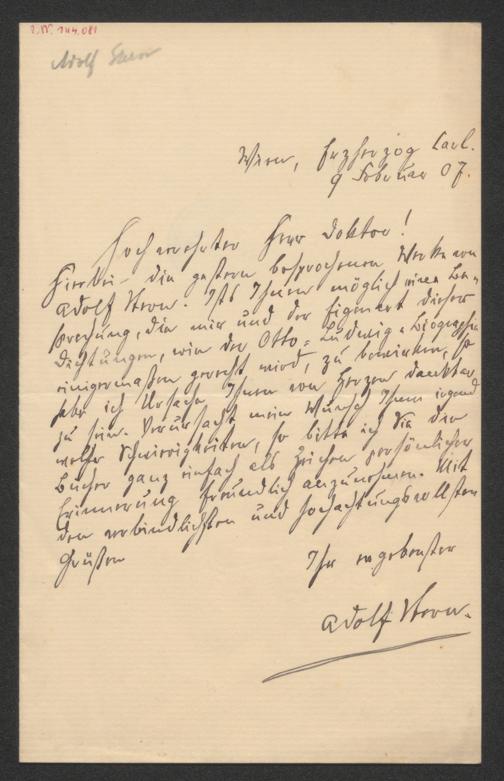 I.N. 144.081
Adolf Stern
Wien, Erzherzog Carl.
9 Februar 07.
Hochverehrter Herr Doktor!
Hierbei die gestern besprochenen Werke von
Adolf Stern. Ists Ihnen möglich eine Be-
sprechung, die mir und der Eigenart dieser
Dichtungen, wie der Otto-Ludwig-Biographie
einigermaßen gerecht wird, zu bewirken, so
habe ich Ursach Ihnen von Herzen dankbar
zu sein. Verursacht mein Wunsch Ihnen irgend
welche Schwierigkeiten, so bitte ich Sie die
Bücher ganz einfach als Zeichen persönlicher
Erinnerung freundlich anzunehmen. Mit
den verbindlichsten und hochachtungsvollsten
Grüßen
Ihr ergebenster
Adolf Stern.